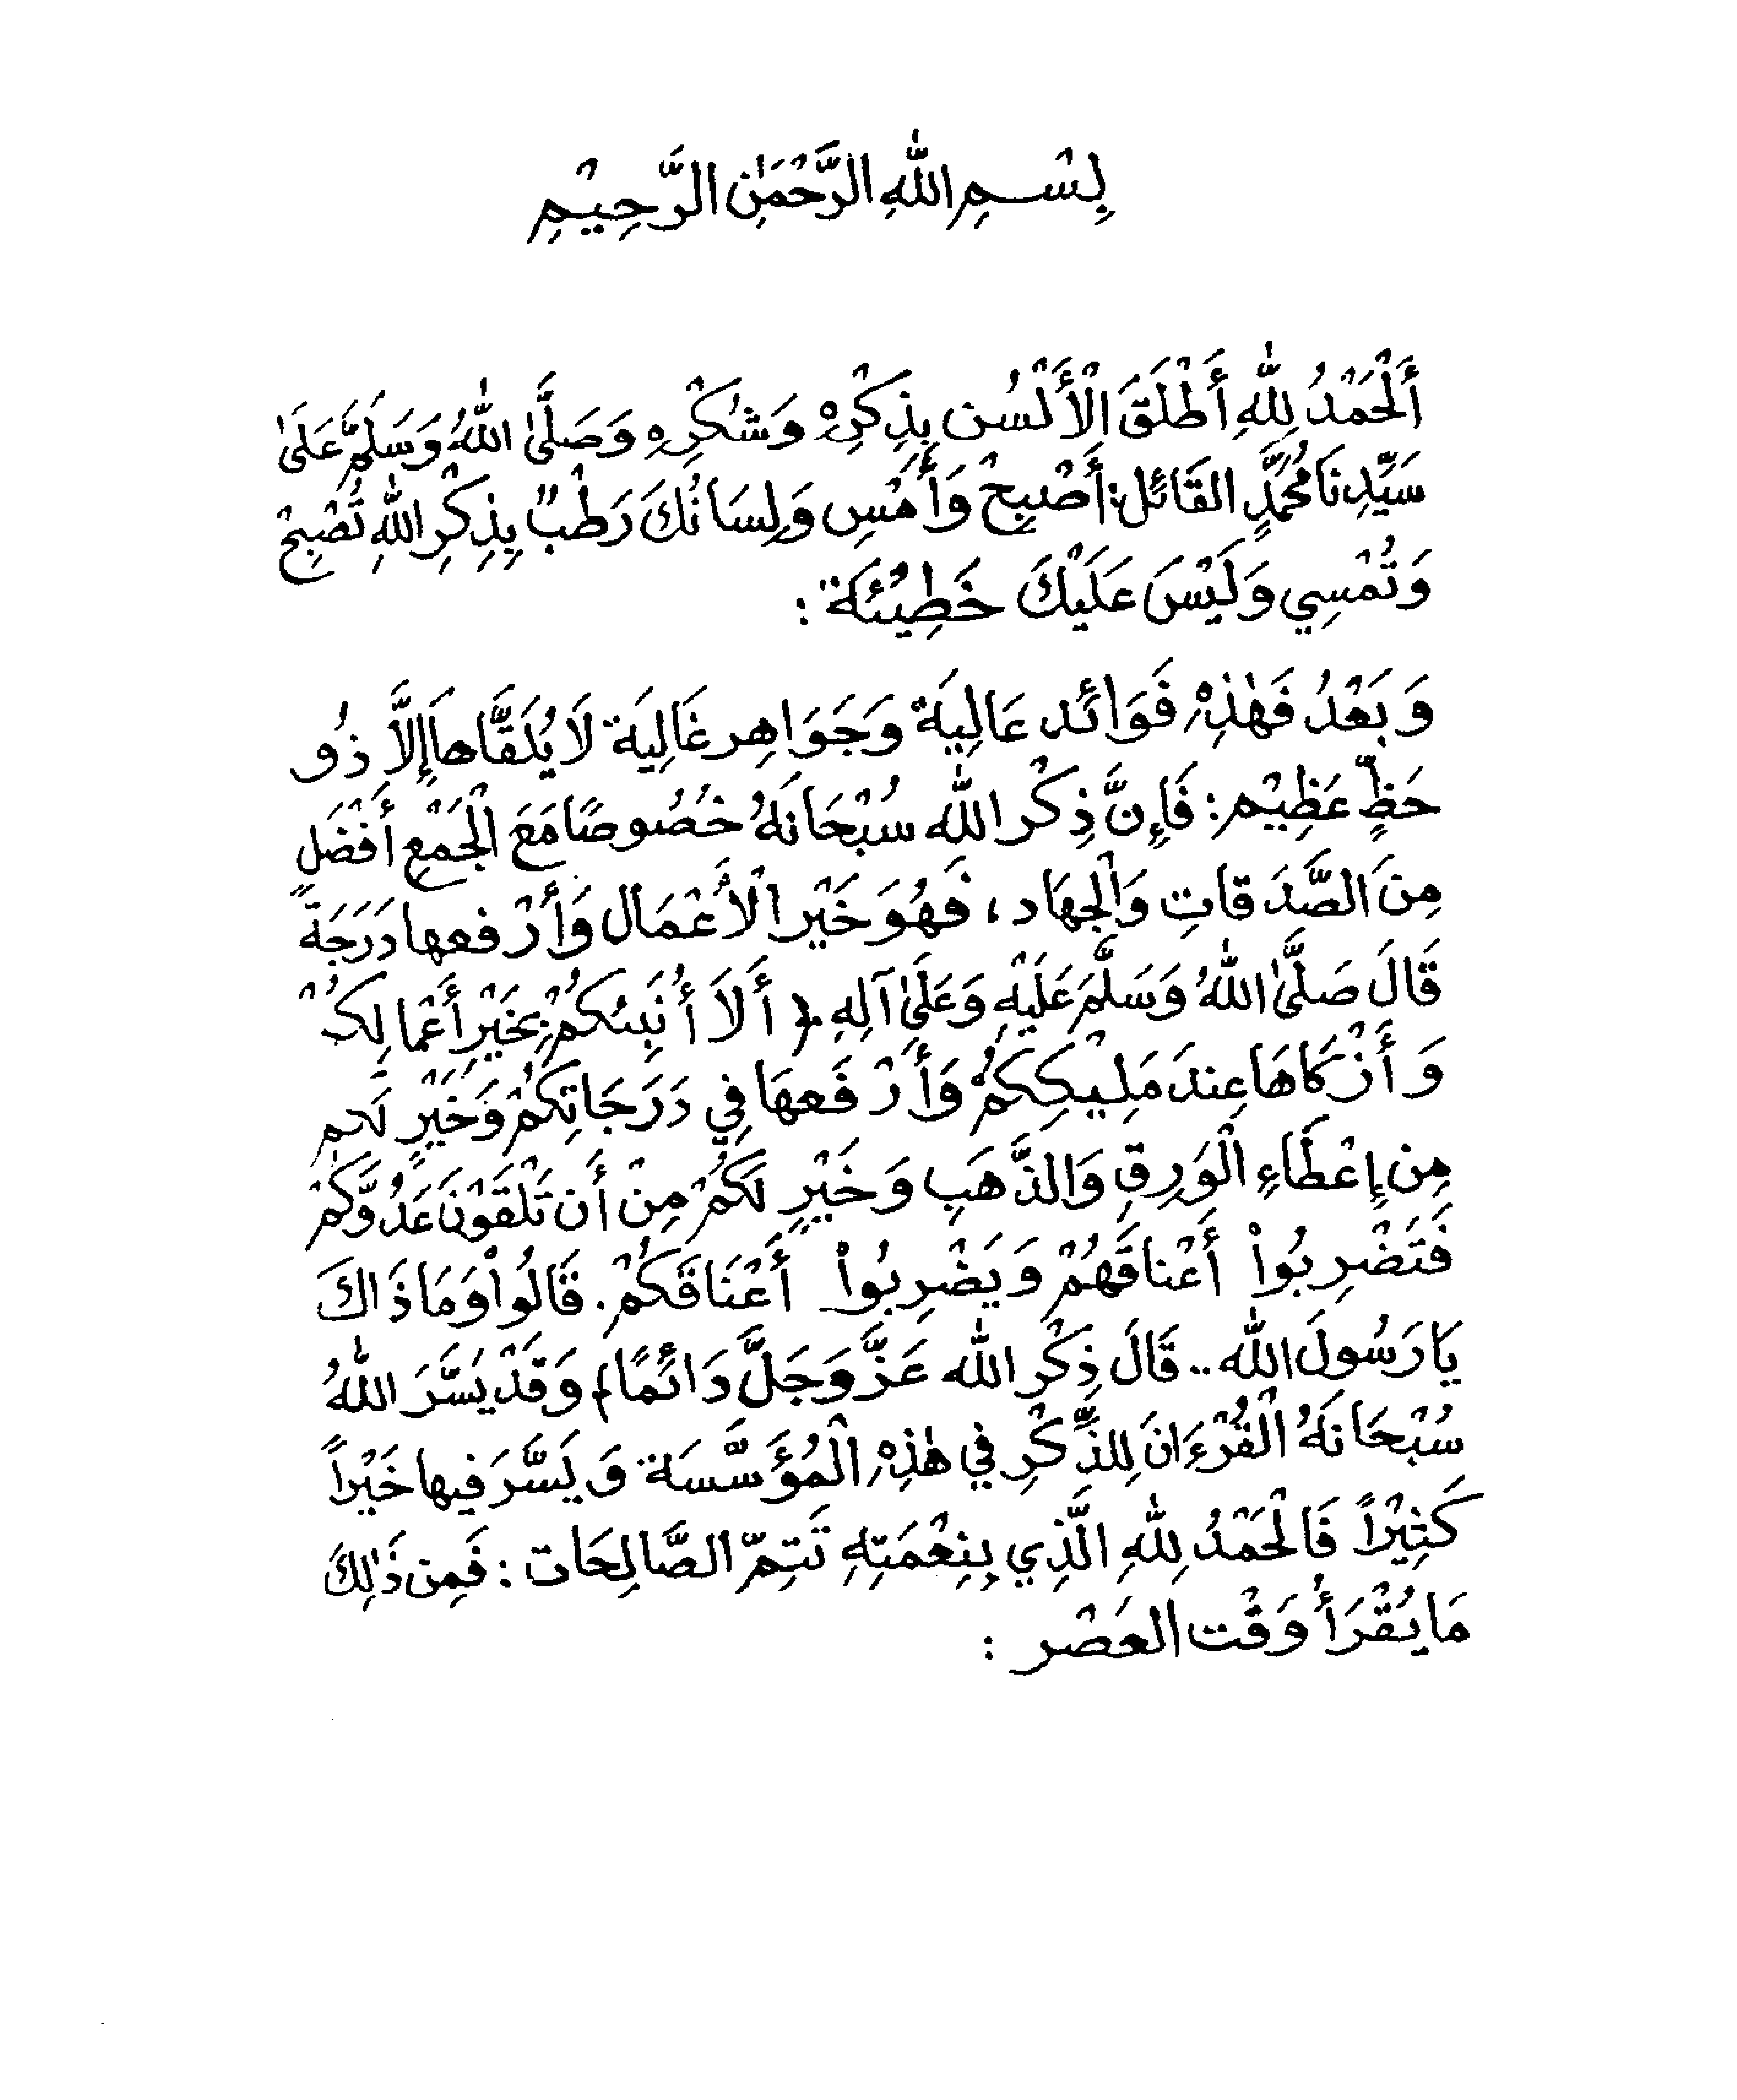 بِسْمِ اللهِ الرَّحْمٰنِ الرَّحِيْمِ
أَلْحَمْدُ لِلّٰهِ أَطْلَقَ الْأَلْسُن بِذِكْرِهْ وَشُكْرِهِ وَصَلَّىٰ اللهُ وَسَلَّمَ عَلَىٰ
سَيِّدِنَا مُحَمَّدٍ القَائل: أَصْبِحْ وَأَمْسِ وَلِسَانُكَ رَطْبٌ بِذِكْرِ اللهِ تُصْبِحْ
وَتُمْسِي وَلَيْسَ عَلَيْكَ خَطِيْئَة :
وَبَعْدُ فَهٰذِهْ فَوَائد عَالِيَة وَجَوَاهِر غَالِيَة لَا يُلَقَّاهَا إِلَّا ذُو
حَظٍّ عَظِيْم : فَإِنَّ ذِكْر الله سُبْحَانَهُ خُصُوصًا مَعَ الْجَمْعِ أَفْضَل
مِنَ الصَّدَقاتِ وَالْجِهَاد ، فَهُوَ خَيْر الْأَعْمَال وَأَرْفعها دَرَجَةً
قَالَ صَلَّىٰ اللهُ وَسَلَّمَ عَلَيْهِ وَعَلَىٰ آلِهِ ﴿ أَلَا أُنَبِئكُمْ بِخَيْرِ أَعْمَالِكُمْ
وَأَزْكَاهَا عِندَ مَلِيْكِكُمْ وَأَرْفَعِهَا فِي دَرَجَاتِكُمْ وَخَيْرٍ لَكم
مِن إِعْطَاءِ الْوَرِقِ وَالذَّهَبِ وَخَيْرٍ لَكُمْ مِنْ أَن تَلْقَوْنَ عَدُوَّكُمْ
فَتَضْرِبُواْ أَعْناقَهُمْ وَيَضْرِبُواْ أَعْنَاقَكُمْ . قَالُواْ وَمَا ذَاكَ
يَا رَسُولَ الله .. قَالَ ذِكْر الله عَزَّ وَجَلَّ دَائمًا ﴾ وَقَدْ يَسَّرَ اللهُ
سُبْحَانَهُ الْقُرْءَانَ لِلذِّكْرِ في هٰذِهْ الْمُؤَسَّسَة وَيَسَّرَ فِيها خَيْراً
كَثِيْراً فَالْحَمْدُ لِلّٰهِ الَّذِي بِنِعْمَتِهِ تَتِمّ الصَّالِحَات : فَمِن ذٰلِكَ
مَا يُقْرَأُ وَقْت العَصْر :